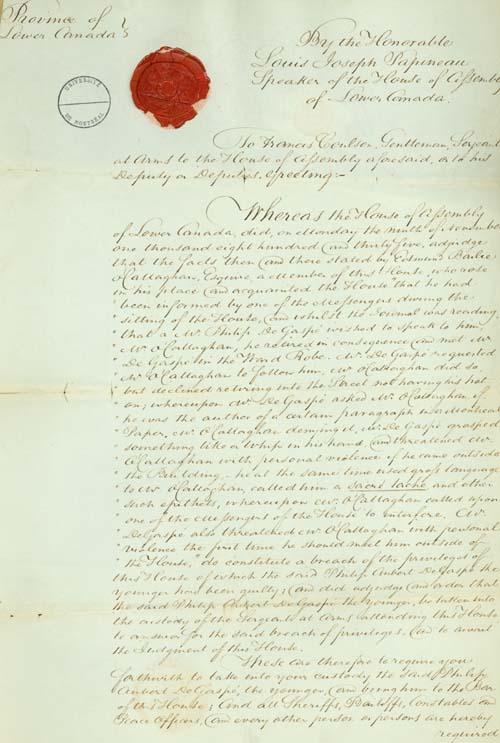 Province of
Lower Canada
UNIVERSITÉ
DE MONTRÉAL
By the Honorable
Louis Joseph Papineau
Speaker of the House of Assembly
of Lower Canada.
To Francis Coulson, Gentleman, Sergeant
at Arms to the House of Assembly aforesaid, or to his
Deputy or Deputies, Greeting:-
Whereas the House of Assembly
of Lower Canada, did, on Monday the ninth of November
one thousand eight hundred and thirty five, adjudge
that the facts then and there stated by Edmund Bailie
O'Callaghan, Esquire, a Member of this House, who rose
in his place and acquainted the House that he had
"been informed by one of the Messengers during the
"sitting of the House, and whilst the Journal was reading
"that a Mr. Philip De Gaspé wished to speak to him,
"Mr. O'Callaghan, he retired in consequence and met Mr.
"De Gaspé in the Ward Robe. Mr. De Gaspé requested
"Mr. O'Callaghan to follow him, Mr. O'Callaghan did so,
"but declined retiring into the Street not having his hat
"on; whereupon Mr. De Gaspé asked Mr. O'Callaghan if
"he was the author of a certain paragraph in a Montreal
"Paper, Mr. O'Callaghan denying it, Mr. De Gaspé grasped
"something like a Whip in his hand, and threatened Mr.
"O'Callaghan with personal violence if he came outside
"the Building. he at the same time used gross language
"to Mr. O'Callaghan, called him a Sacré lache and other
"such epithets, whereupon Mr. O'Callaghan called upon
"one of the Messengers of the House to interfere. Mr.
"DeGaspé also threatened Mr. O'Callaghan with personal
"violence the first time he should meet him outside of
"the House," do constitute a breach of the privileges of
this House of which the said Philip Aubert De Gaspé the
younger had been guilty; and did adjudge and order that
the said Philip Aubert De Gaspé the younger, be taken into
the custody of the Sergeant at Arms attending this House
to answer for the said breach of privileges, and to await
the Judgment of this House.
These are therefore to require you
forthwith to take into your custody the said Philip
Aubert De Gaspé, the younger, and bring him to the Bar
of this House; And all Sheriffs, Bailiffs, Constables and
Peace Officers, and every other person or persons are hereby
required